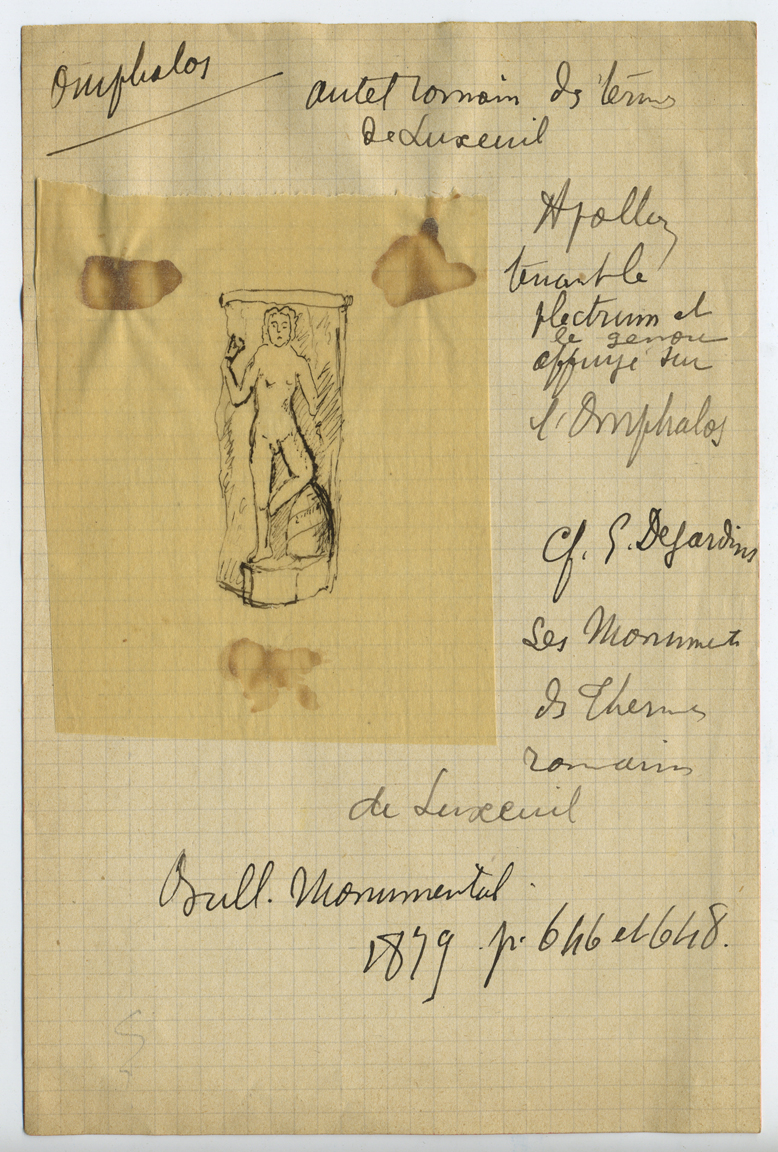 Omphalos
autel romain ds termes
de Luxeuil
Apollon
tenant le
plectrum et
le genou
appuyé sur
l'Omphalos
Cf. E. Desjardins
Les Monuments
ds Thermes
romains
de Luxeuil
Bull. Monumental.
1879 p. 646 et 648.